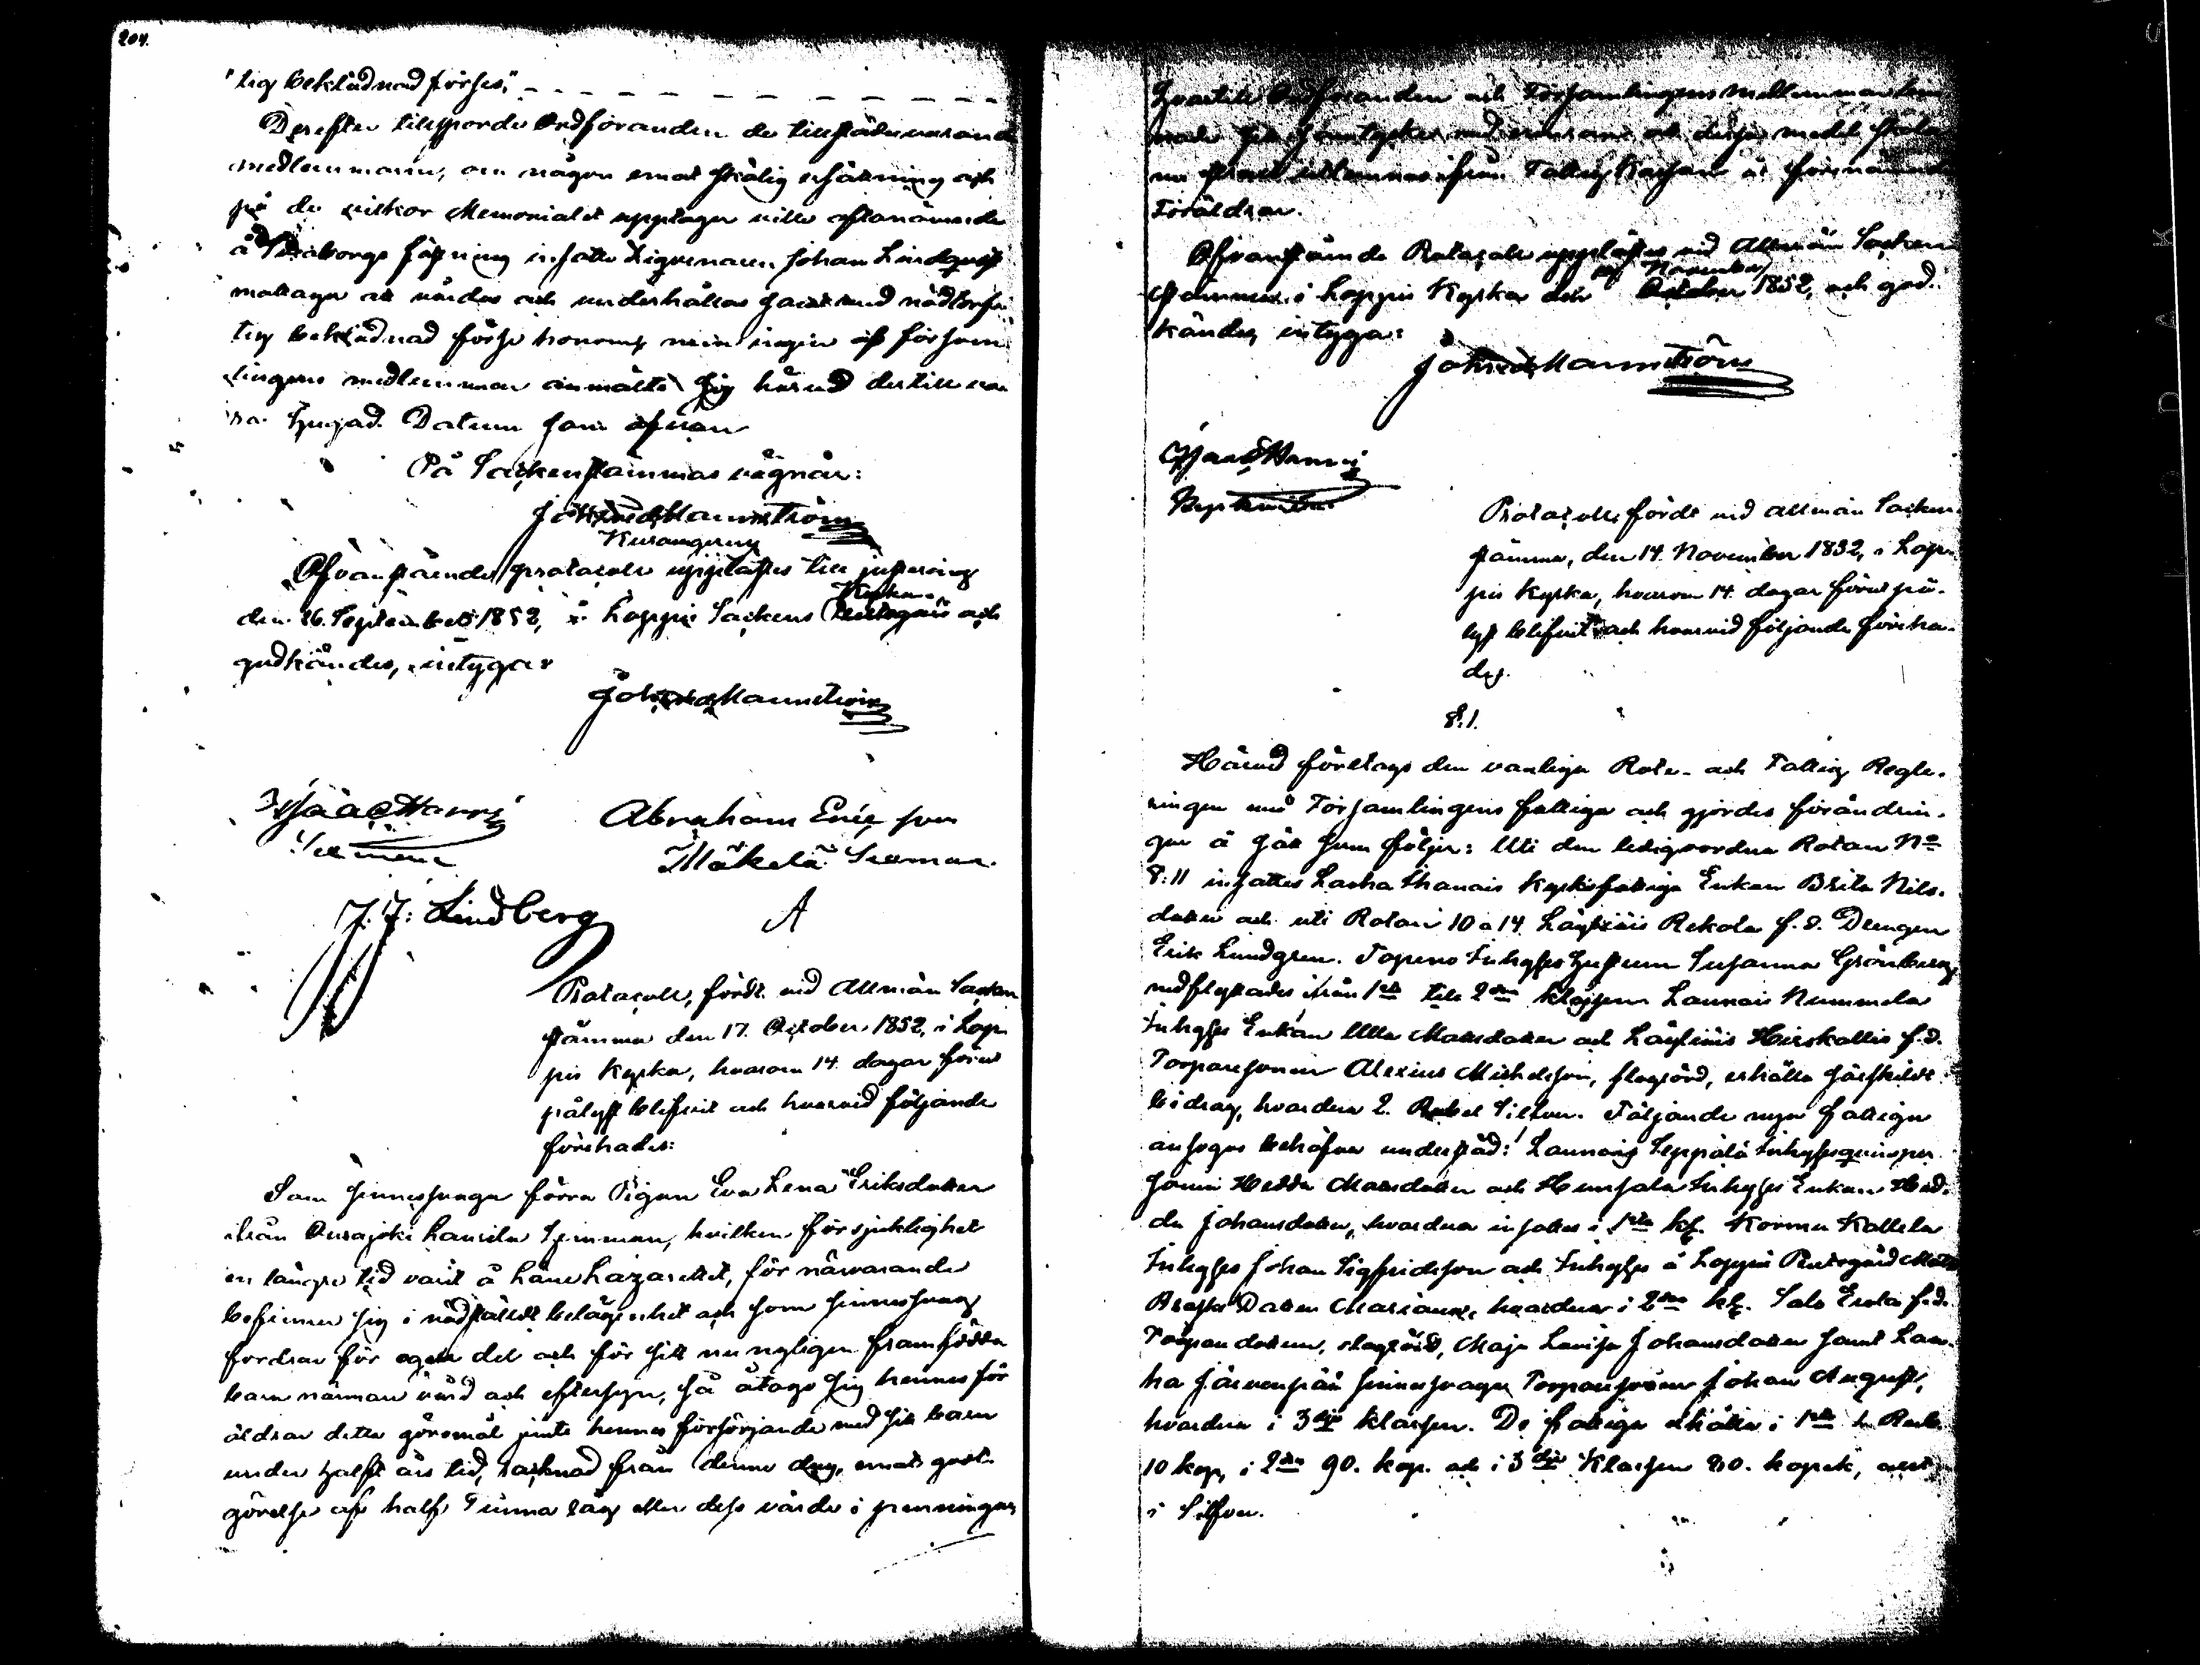 204.
"lig beklädnad förses," _ _ _ _ _ _ _ _ _ _
Derefter tillsporde Ordföranden de tillstädesvarande
medlemmarne, om någon emot skälig ersättning och
på de vilkor Memorialet upptager ville oftanämnde
å Sveaborgs fästning insatte Zigenaren Johan Lindqvist
mottaga att vårdas och underhållas samt med nödtorf-
tig beklädnad förse honom; men ingen af försam-
lingens medlemmar anmälte sig härvid dertill va-
ra hugad. Datum som ofvan
På Sockenstämmas vägnar:
Joh: Fred: Mannström
Ofvanstående protocoll upplästes till justering
den 26. September 1852, i Loppis Sockens Kyrka och
godkändes, intygar
Joh: Fred: Mannström
Isaac Hannuj
Abraham Ericsson
Mäkelä
J. J: Lindberg
A
Protocoll, fördt vid Allmän Socken
stämma den 17. October 1852, i Lop-
pis Kyrka, hvarom 14 dagar förut
pålyst blifvit och hvarvid följande
förehades:
Som sinnessvaga förra Pigan Eva Lena Eriksdotter
ifrån Ourajoki, hvilken för sjuklighet
en längre tid varit å Läne Lazarettet, för närvarande
befinner sig i nödstäldt belägenhet och som sinnessvag
fordrar för egen del och för sitt nu nyligen framfödda
barn närmare vård och eftersyn, så åtogo sig hennes för
äldrar detta göromål jemte hennes försörjande med sitt barn
under halft års tid, räknad från denna dag, emot godt-
görelse af half Tunna råg eller dess värde i penningar
hvartill Ordföranden och Församlingens medlemmar lem-
nade sitt samtycke
ifrån Fattig Kassan åt förenämnde
Föräldrar.
Ofvanstående Protocoll upplästes vid Allmän Socken
stämma i Loppis Kyrka den November 1852, och god-
kändes, intygar:
Joh: Fred: Mannström
Isaac Hannuj
Protocoll, fördt vid allmän Socken
stämma, den 14. November 1852, i Lop-
pis Kyrka, hvarom 14. dagar förut på-
lyst blifvit och hvarvid följande föreha-
des.
§.1.
Härvid företogs den vanliga Rote- och Fattig Regle-
ringen med Församlingens fattige och gjordes förändrin-
gar å sätt som följer: Uti den ledigvordna Rotan No
8:11 insattes Kyrkofattiga Enkan Brita Nils-
dotter och uti Rotan 10 a 14 Läyliäis Rekola f.d. Drengen
Erik Lundgren. Topeno Inhyses hustrun Susanna Grönberg
nedflyttades ifrån 1sta till 2dra klassen Launois Nummela
Inhyses Enkan Ulla Matsdotter och Läyliäis Hirskallio f.d.
Torparesonen Alexius Michelsson, slagrörd, erhålla särskildt
bidrag, hvardera 2. Rubel Silfver. Följande nya fattiga
ansågos behöfva understöd: Launois Seppälä Inhysesqvinsper-
sonen Hedda Matsdotter och Hunsala Inhyses Enkan Hed-
da Johansdotter, hvardera insattes i 1sta kl. Kormu Kattela
Inhyses Johan Sigfridsson och Inhyses å Loppis Prestegård
Dotter Mariana, hvardera i 2dra kl. Salo Erola f.d.
Torpar dottren, slagrörd, Maja Lovisa Johansdotter samt
sinnessvaga Torparesonen Johan August,
hvardera i 3dje klassen. De fattiga erhålla i 1sta
10 kop, i 2dra 90. kop. och i 3dje Klassen 80. kopek, allt
i Silfver.